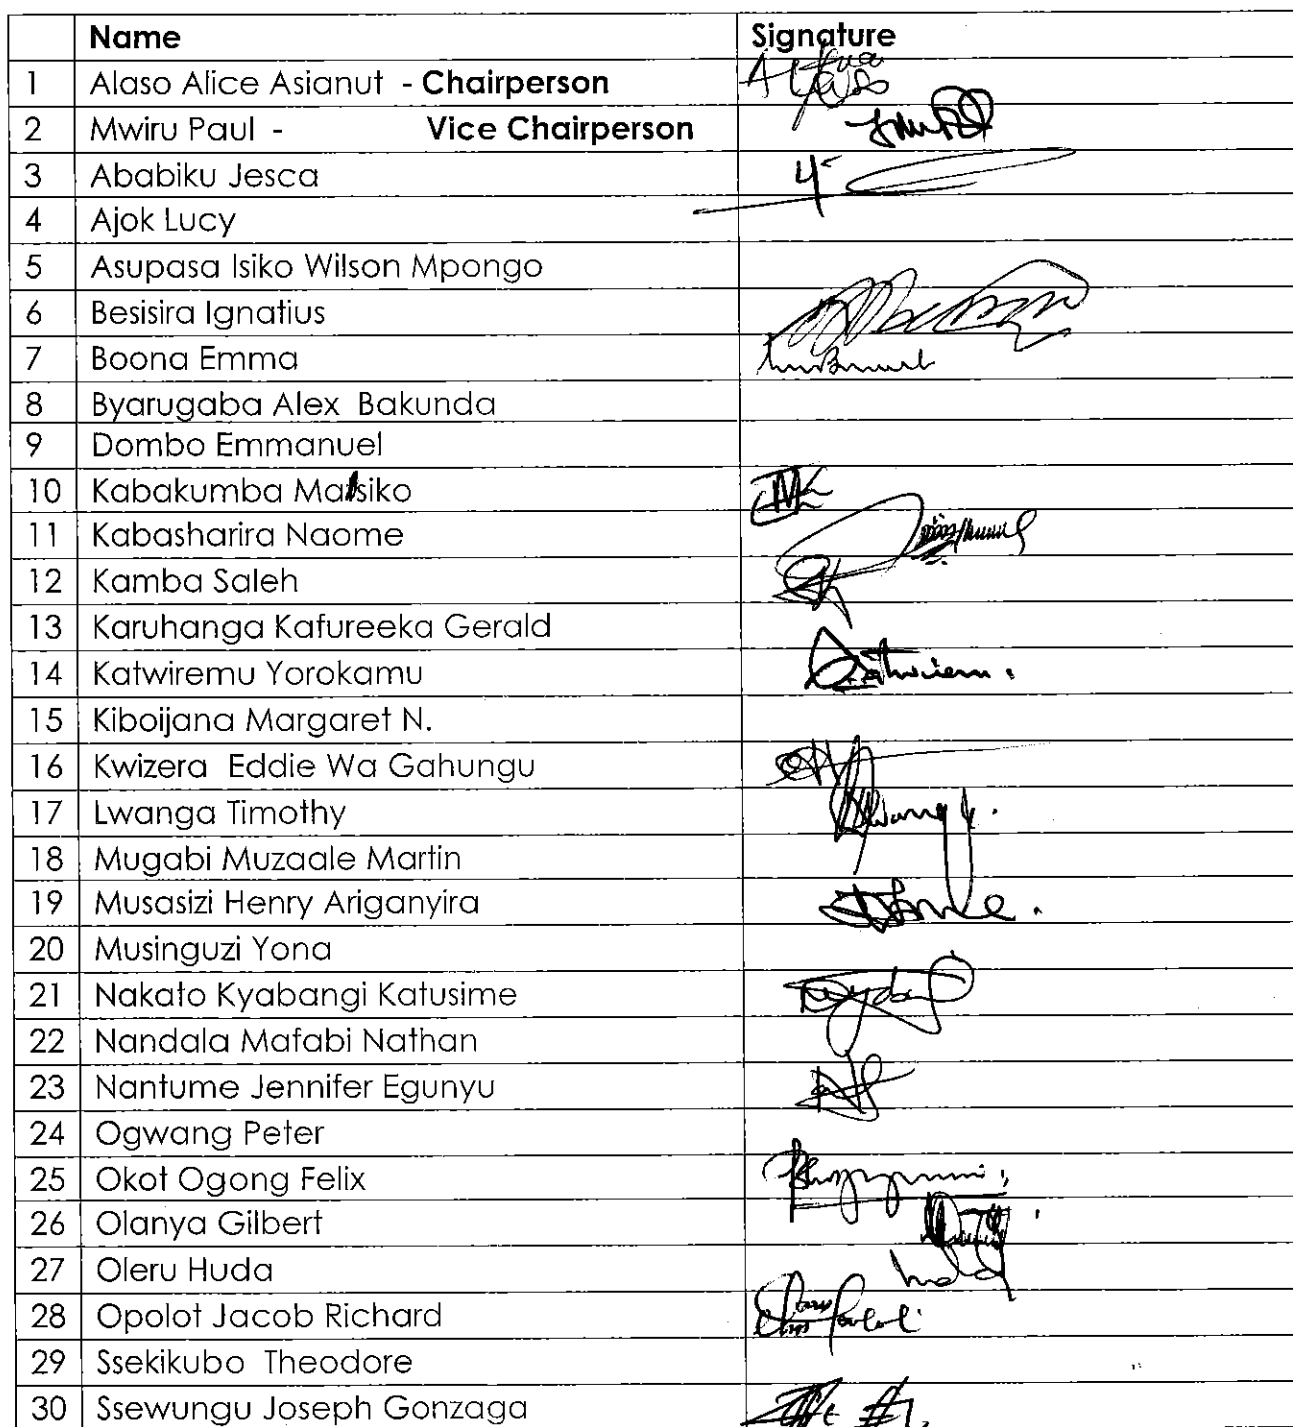 Name Signature
1 Alaso Alice Asianut - Chairperson
2 Mwiru Paul - Vice Chairperson
3 Ababiku Jesca
4 Ajok Lucy
5 Asupasa Isiko Wilson Mpongo
6 Besisira Ignatius
7 Boona Emma
8 Byarugaba Alex Bakunda
9 Dombo Emmanuel
10 Kabakumba Matsiko
11 Kabasharira Naome
12 Kamba Saleh
13 Karuhanga Kafureeka Gerald
14 Katwiremu Yorokamu
15 Kiboijana Margaret N.
16 Kwizera Eddie Wa Gahungu
17 Lwanga Timothy
18 Mugabi Muzaale Martin
19 Musasizi Henry Ariganyira
20 Musinguzi Yona
21 Nakato Kyabangi Katusime
22 Nandala Mafabi Nathan
23 Nantume Jennifer Egunyu
24 Ogwang Peter
25 Okot Ogong Felix
26 Olanya Gilbert
27 Oleru Huda
28 Opolot Jacob Richard
29 Ssekikubo Theodore
30 Ssewungu Joseph Gonzaga